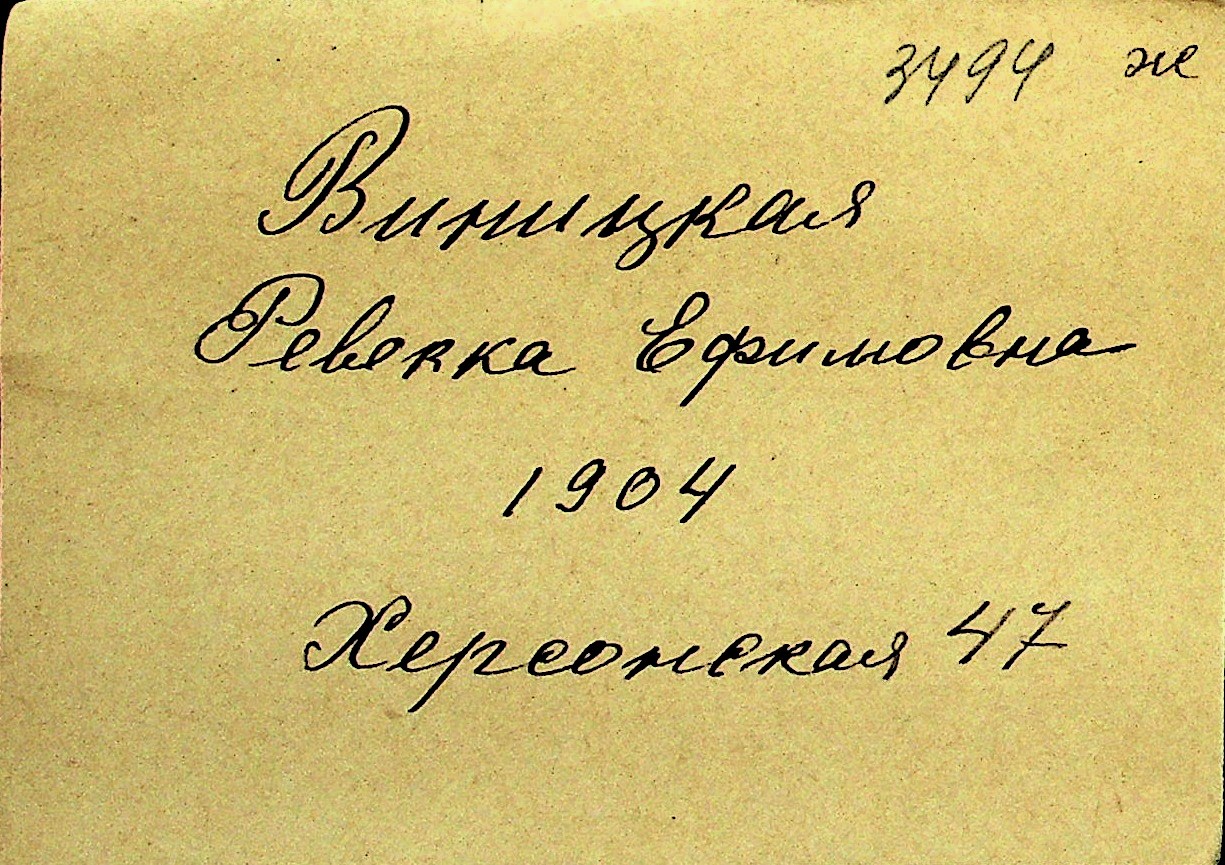 3494 ж
Виницкая
Ревекка Ефимовна
1904
Херсонская 47